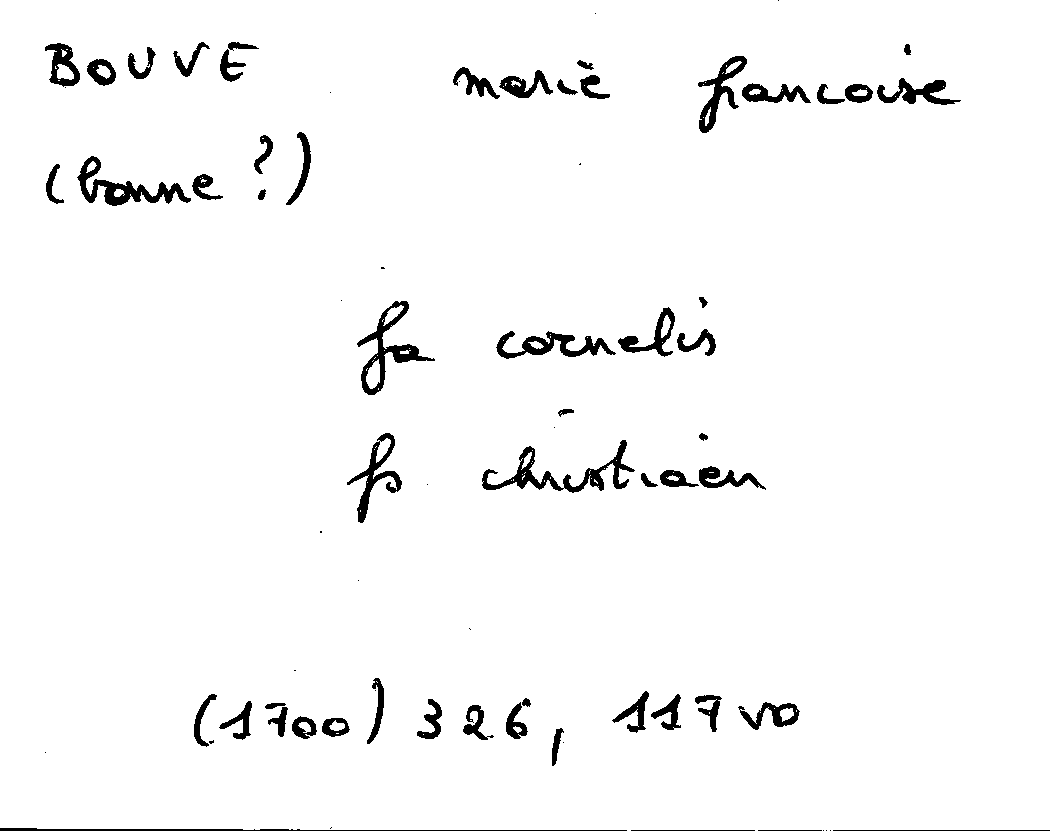 BOUVE marie francoise
(bonne ?)
fa cornelis
fs christiaen
(1700) 326, 117 vo